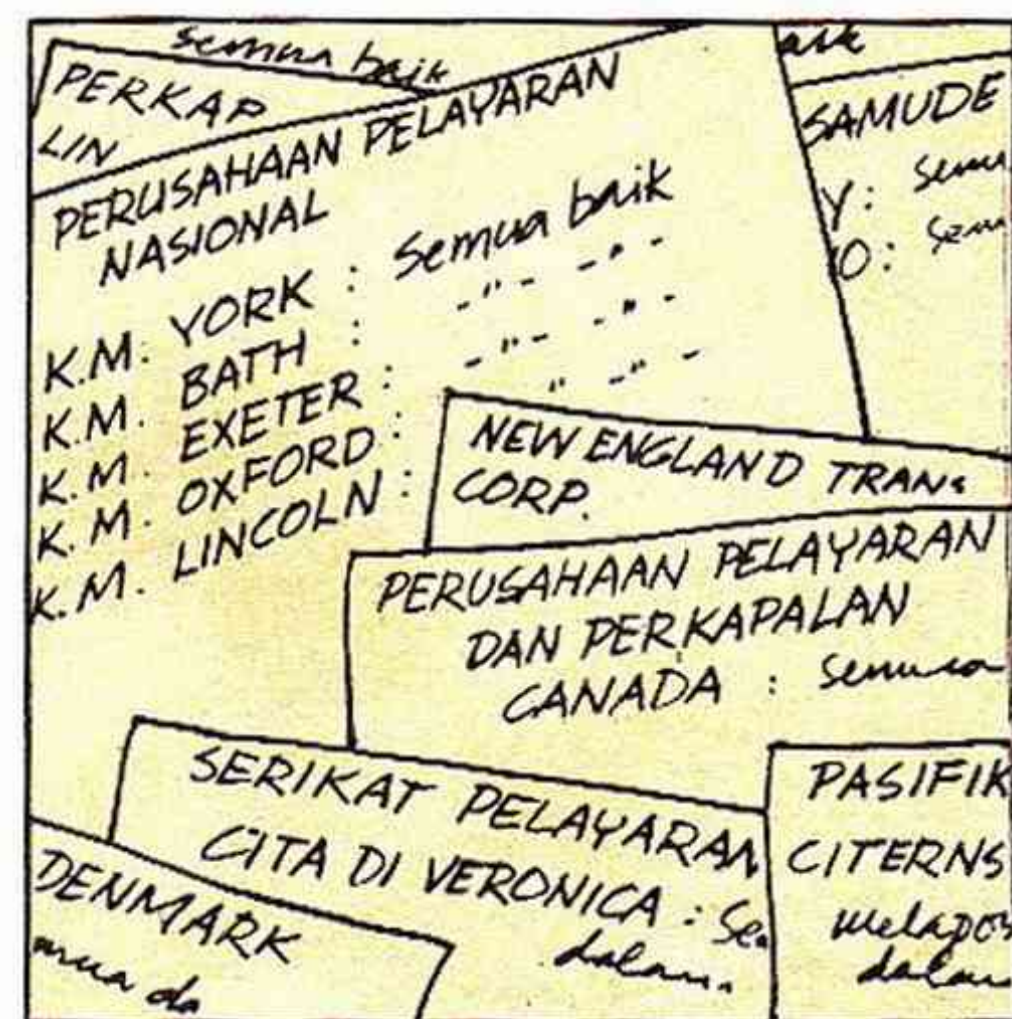 semua baik
PERKAP
LIN
PERUSAHAAN PELAYARAN
NASIONAL
K.M. YORK : semua baik
K.M. BATH : -"- -"-
K.M. EXETER : -"- -"-
K.M. OXFORD : " -"-
K.M. LINCOLN :
SAMUDE
Y: semu
O: semu
NEW ENGLAND TRANS
CORP.
PERUSAHAAN PELAYARAN
DAN PERKAPALAN
CANADA : semua
SERIKAT PELAYARAN
CITA DI VERONICA : Se
dalam
PASIFIK
CITERNS
melapor
dalam
DENMARK
mua da